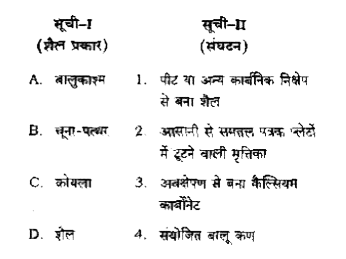 सूची–I सूची–II
(शैल प्रकार) (संघटन)
A. बालुकाश्म 1. पीट या अन्य कार्बनिक निक्षेप
से बना शैल
B. चूना-पत्थर 2. आसानी से समतल पत्रक प्लेटों
में टूटने वाली मृत्तिका
C. कोयला 3. अवक्षेपण से बना कैल्सियम
कार्बोनेट
D. शेल 4. संयोजित बालू कण